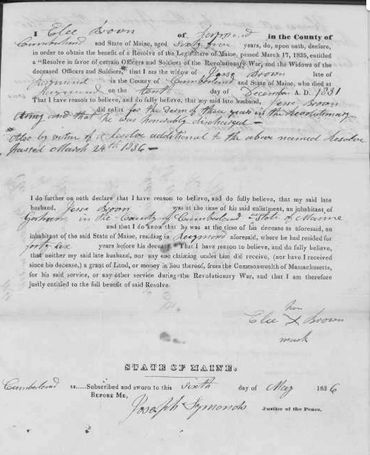 I Elce Brown of Raymond in the County of
Cumberland and State of Maine, aged Sixty five years, do, upon oath, declare,
in order to obtain the benefit of a Resolve of the Legislature of Maine, passed March 17, 1835, entitled
a "Resolve in favor of certain Officers and Soldiers of the Revolutionary War, and the Widows of the
deceased Officers and Soldiers," that I am the widow of Jesse Brown late of
Raymond in the County of Cumberland and State of Maine, who died at
Raymond on the tenth day of December A. D. 1831
That I have reason to believe, and do fully believe, that my said late husband, Jesse Brown
did enlist for the Term of three years in the Revolutionary
Army and that he was honorably discharged
Also by virtue of a resolve additional to the above named Resolve
passed March 24th 1836—
I do further on oath declare that I have reason to believe, and do fully believe, that my said late
husband, Jesse Brown was at the time of his said enlistment, an inhabitant of
Gorham in the County of Cumberland State of Maine
and that I do know that he was at the time of his decease as aforesaid, an
inhabitant of the said State of Maine, residing in Raymond aforesaid, where he had resided for
forty six years before his decease. That I have reason to believe, and do fully believe,
that neither my said late husband, nor any one claiming under him did receive, (nor have I received
since his decease,) a grant of Land, or money in lieu thereof, from the Commonwealth of Massachusetts,
for his said service, or any other service during the Revolutionary War, and that I am therefore
justly entitled to the full benefit of said Resolve.
her
Elce X Brown
mark
STATE OF MAINE.
Cumberland ss.....Subscribed and sworn to this sixth day of May 1836
BEFORE ME,
Joseph Symonds Justice of the Peace.